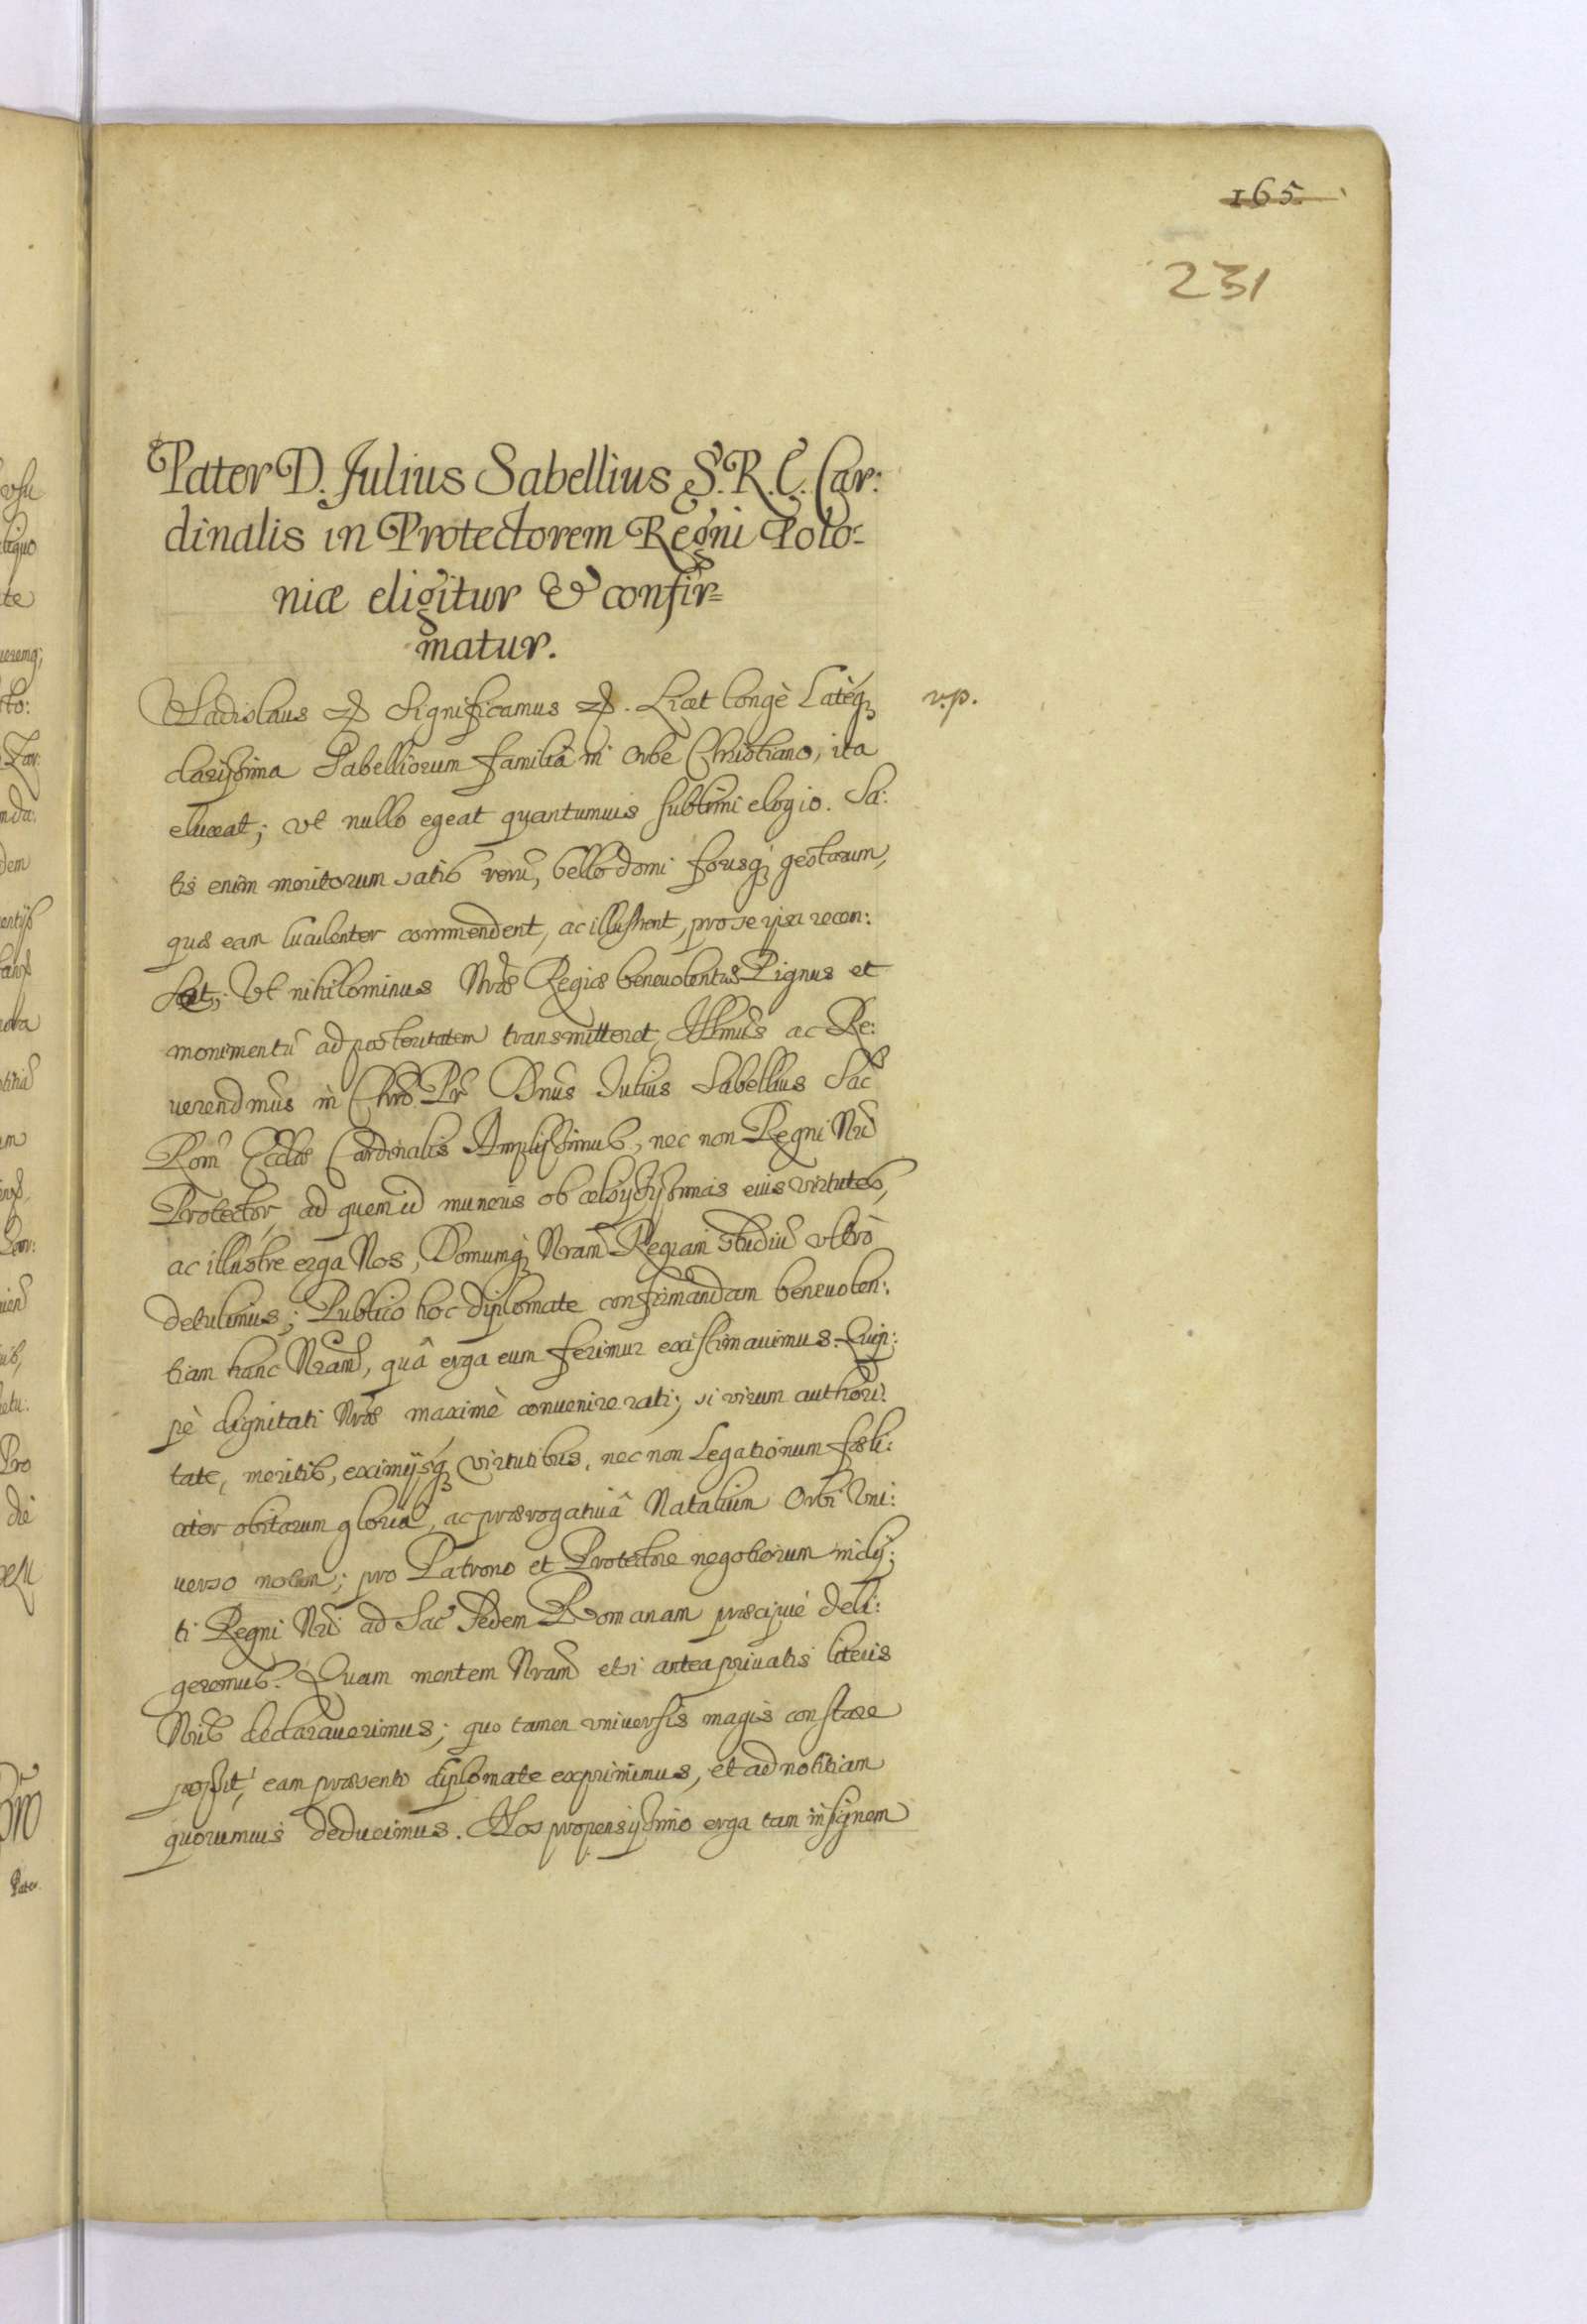 165.
231
Pater D. Julius Sabellius S. R. E. Car:
dinalis in Protectorem Regni Polo=
niæ eligitur & confir=
matur.
Vladislaus &. Significamus &. Licet longè Latéq;
v.p.
clarissima Sabelliorum familia in Orbe Christiano, ita
eluceat; vt nullo egeat quantumuis sublimi elogio. Sa:
tis enim meritorum satis rerũ, bello domi forisq; gestarum,
quæ eam luculenter commendent, ac illustrent, pro se ipsa recen:
set; Vt nihilominus Nræ Regiæ beneuolentiæ Pignus et
monimentũ ad posteritatem transmitteret, Illmus ac Re:
uerendmus in Chro Pr Dnus Iulius Sabellius Sac
Rom Ecclæ Cardinalis Amplissimus, nec non Regni Nri
Protector, ad quem id muneris ob celsissimas eius virtutes,
ac illustre erga Nos, Domumq; Nram Regiam studiũ vltrò
detulimus; Publico hoc diplomate confirmandam beneuolen:
tiam hanc Nram, quâ erga eum ferimur existimauimus. Quip:
pè dignitati Nræ maximè conuenire rati; si virum authori:
tate, meritis, eximijsq; virtutibus, nec non Legationum fæli:
citer obitarum gloriâ, ac prærogatiuâ Natalium Orbi Vni:
uerso notum; pro Patrono et Protectore negotiorum incly:
ti Regni Nri ad Sac Sedem Romanam præcipuè deli:
geremus. Quam mentem Nram etsi antea priuatis literis
Nris declarauerimus; quo tamen vniuersis magis constare
possit, eam præsenti diplomate exprimimus, et ad notitiam
quorumuis deducimus. Nos propensissimo erga tam insignem